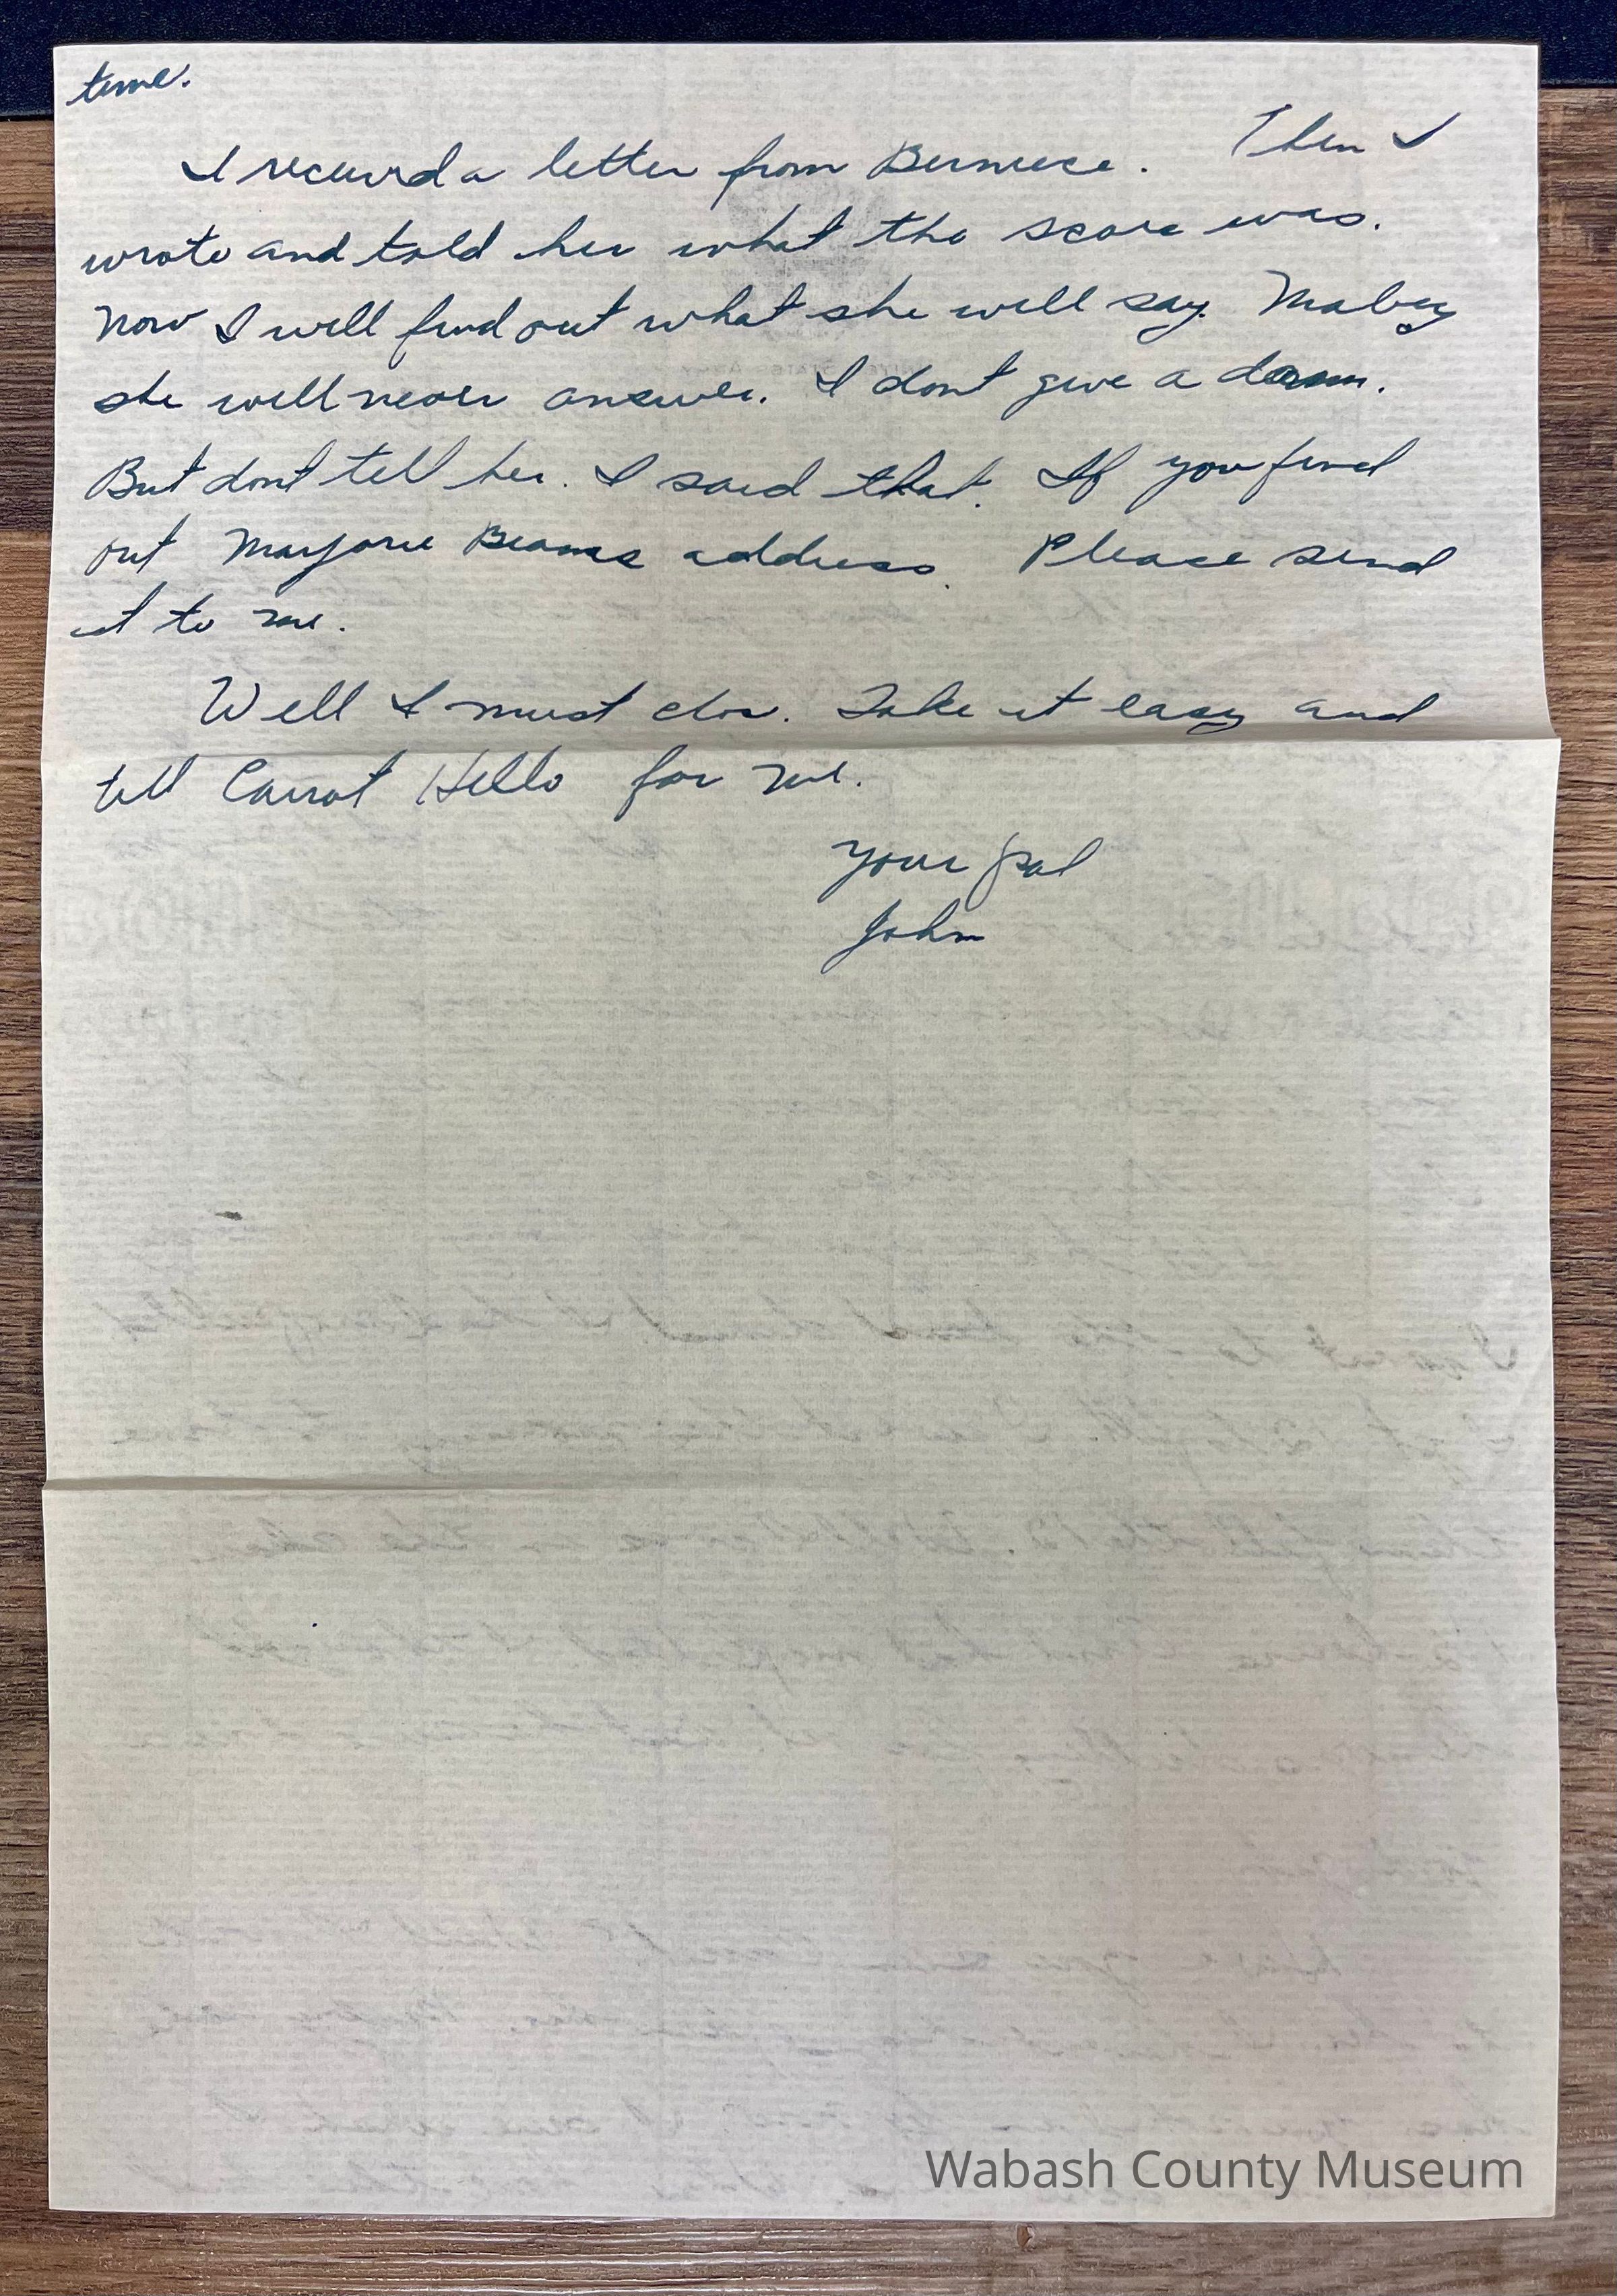 time.
I received a letter from Berniece. Then I
wrote and told her what the score was.
Now I will find out what she will say. Mabey
she will never answer. I dont give a damn.
But dont tell her. I said that. If you find
out Marjorie Beams address. Please send
it to me.
Well I must close. Take it easy and
tell Carrot Hello for me.
Your pal
John
Wabash County Museum